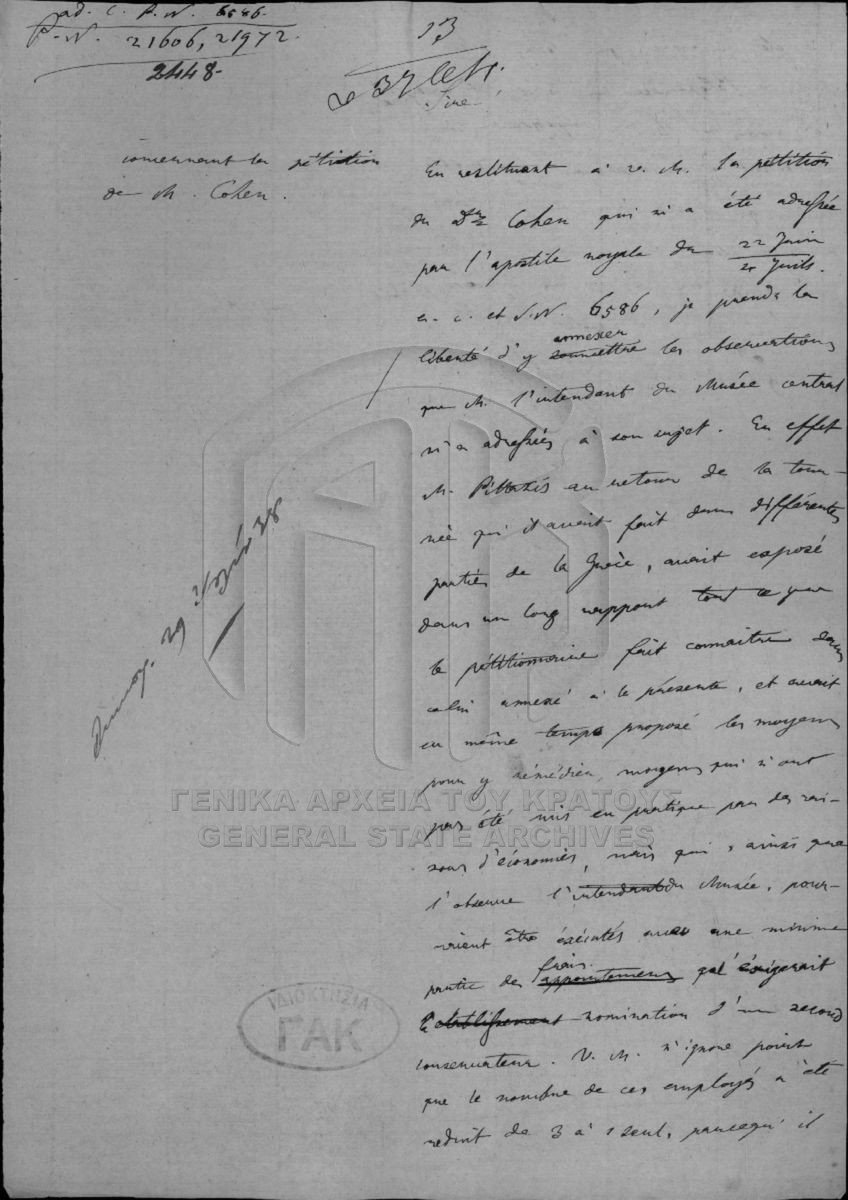 ad. C. P. N. 6586.
P. N. 21606, 21972.
2448.
13
Sire!
concernant la pétition
de M. Cohen.
En restituant à v. M. la pétition
du Dr Cohen qui m'a été adressée
par l'apostile royale du 22 Juin
4 Juil.
a. c. et S. N. 6586, je prends la
annexer
liberté d'y soumettre les observations
que M. l'intendant du Musée central
m'a adressées à son sujet. En effet
M. Pittakis au retour de la tour-
née qu'il avait fait dans différentes
parties de la Grèce, avait exposé
dans un long rapport tout ce que
le pétitionnaire fait connaître dans
celui annexé à la présente, et avait
en même temps proposé les moyens
pour y rémédier, moyens qui n'ont
pas été mis en pratique par des rai-
sons d'économies, mais qui, ainsi que
l'observe l'intendant du Musée, pour-
raient être exécutés avec une minime
frais
partie des appointemens qu'exigerait
la établissement nomination d'un second
conservateur. V. M. n'ignore point
que le nombre de ces employés a été
reduit de 3 à 1 seul, parcequ'il
29 38
ΓΕΝΙΚΑ ΑΡΧΕΙΑ ΤΟΥ ΚΡΑΤΟΥΣ
GENERAL STATE ARCHIVES
ΙΔΙΟΚΤΗΣΙΑ
ΓΑΚ